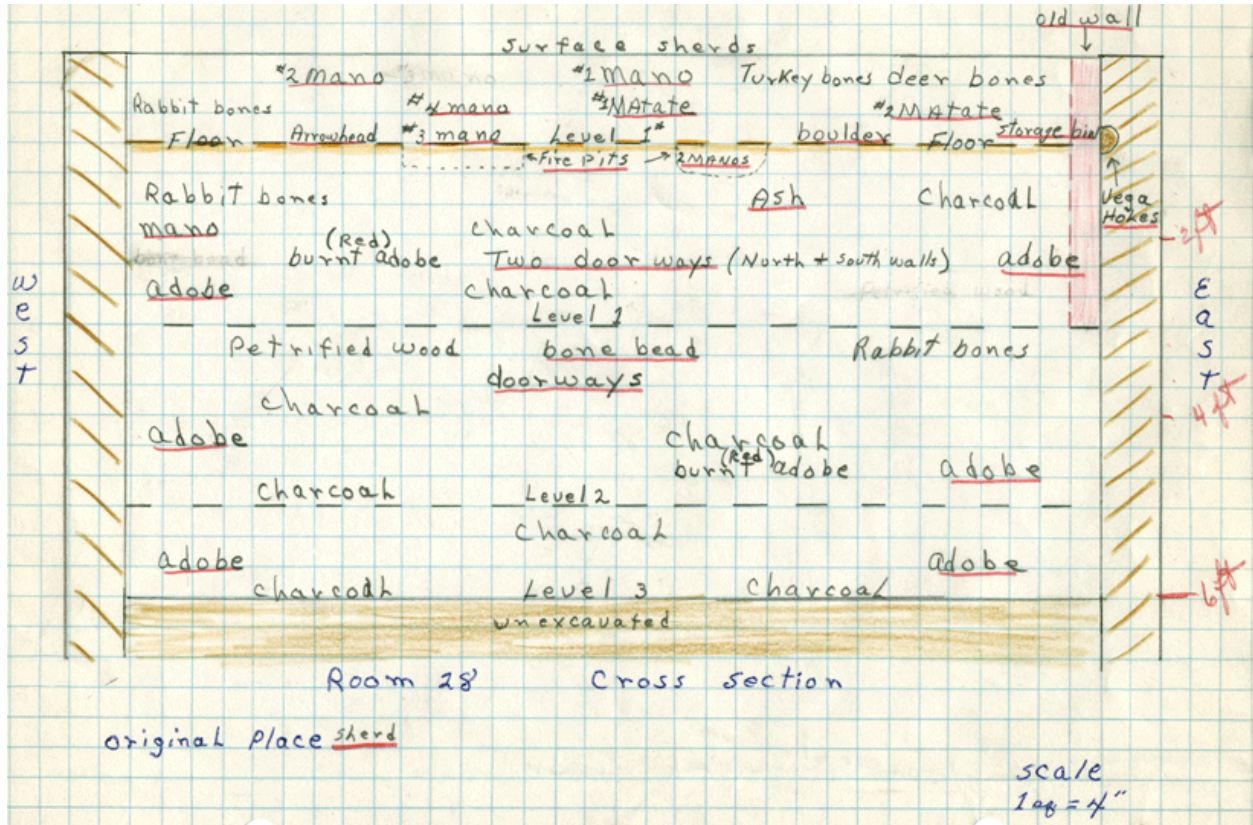 old wall
surface sherds
#2 mano #1 mano Turkey bones deer bones
Rabbit bones #4 mano #1 MAtate #2 MAtate
Floor Arrowhead #3 mano Level 1* boulder Floor storage bin
Fire Pits 2 MANOS
Rabbit bones Ash Charcoal Vega
mano charcoal Hokes
2ft
(Red)
burnt adobe Two door ways (North + south walls) adobe
adobe charcoal
Level 1
West
East
Petrified wood bone bead Rabbit bones
doorways
charcoal
4 ft
adobe charcoal
(Red)
burnt adobe adobe
charcoal Level 2
Charcoal
adobe adobe
charcoal Level 3 Charcoal
6 ft
unexcavated
Room 28 Cross section
original Place sherd
scale
1 sq = 4"